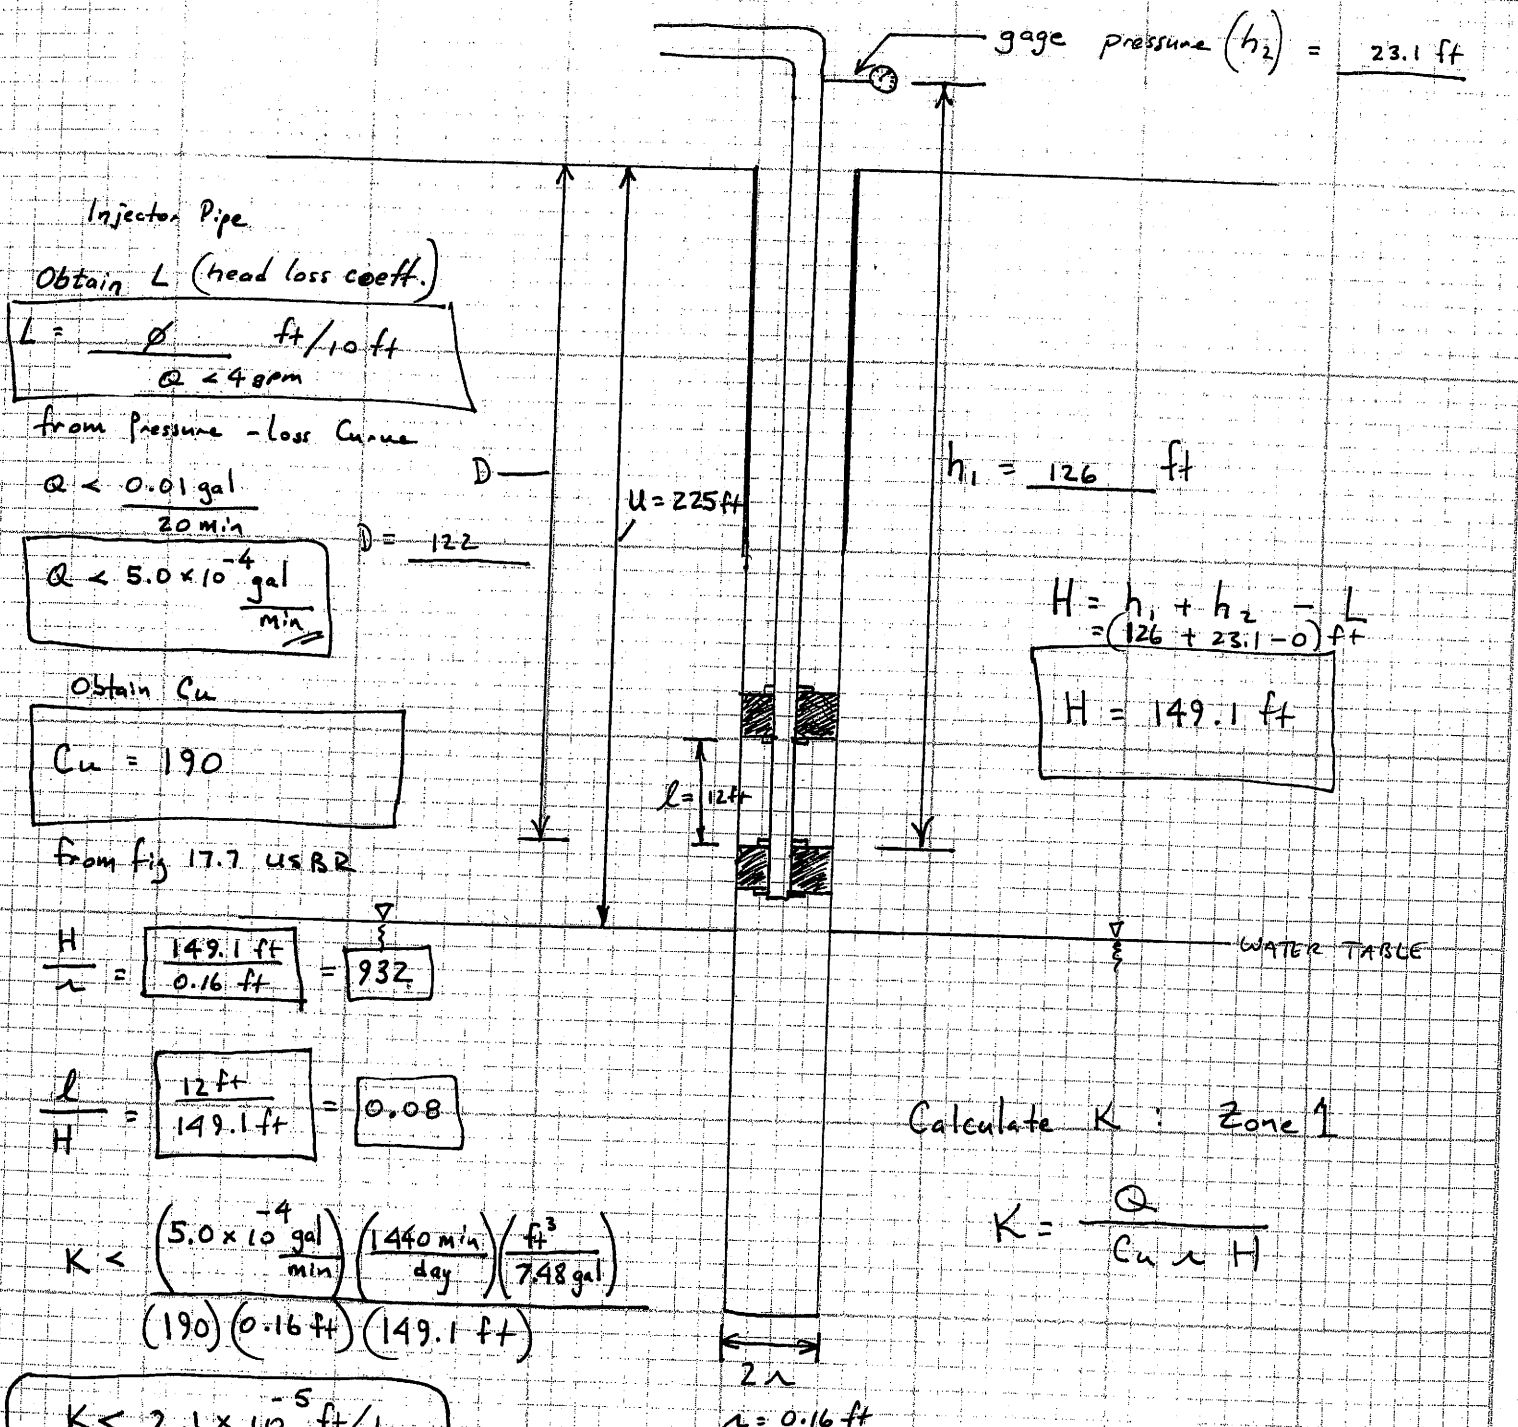 gage pressure (h₂) = 23.1 ft
Injector Pipe
Obtain L (head loss coeff.)
L = ∅ ft/10 ft
Q < 4 gpm
from Pressure-loss Curve
Q < 0.01 gal
20 min
Q < 5.0 × 10⁻⁴ gal
min
D
D = 122
U = 225 ft
h₁ = 126 ft
H = h₁ + h₂ - L
= (126 + 23.1 - 0) ft
H = 149.1 ft
Obtain Cu
Cu = 190
from fig 17.7 USBR
l = 12 ft
WATER TABLE
H/r = 149.1 ft / 0.16 ft = 932
l/H = 12 ft / 149.1 ft = 0.08
Calculate K : Zone 1
K = Q / Cu r H
K < (5.0 × 10⁻⁴ gal/min) (1440 min/day) (ft³/7.48 gal)
(190) (0.16 ft) (149.1 ft)
2 r
r = 0.16 ft
K < 2.1 × 10⁻⁵ ft/